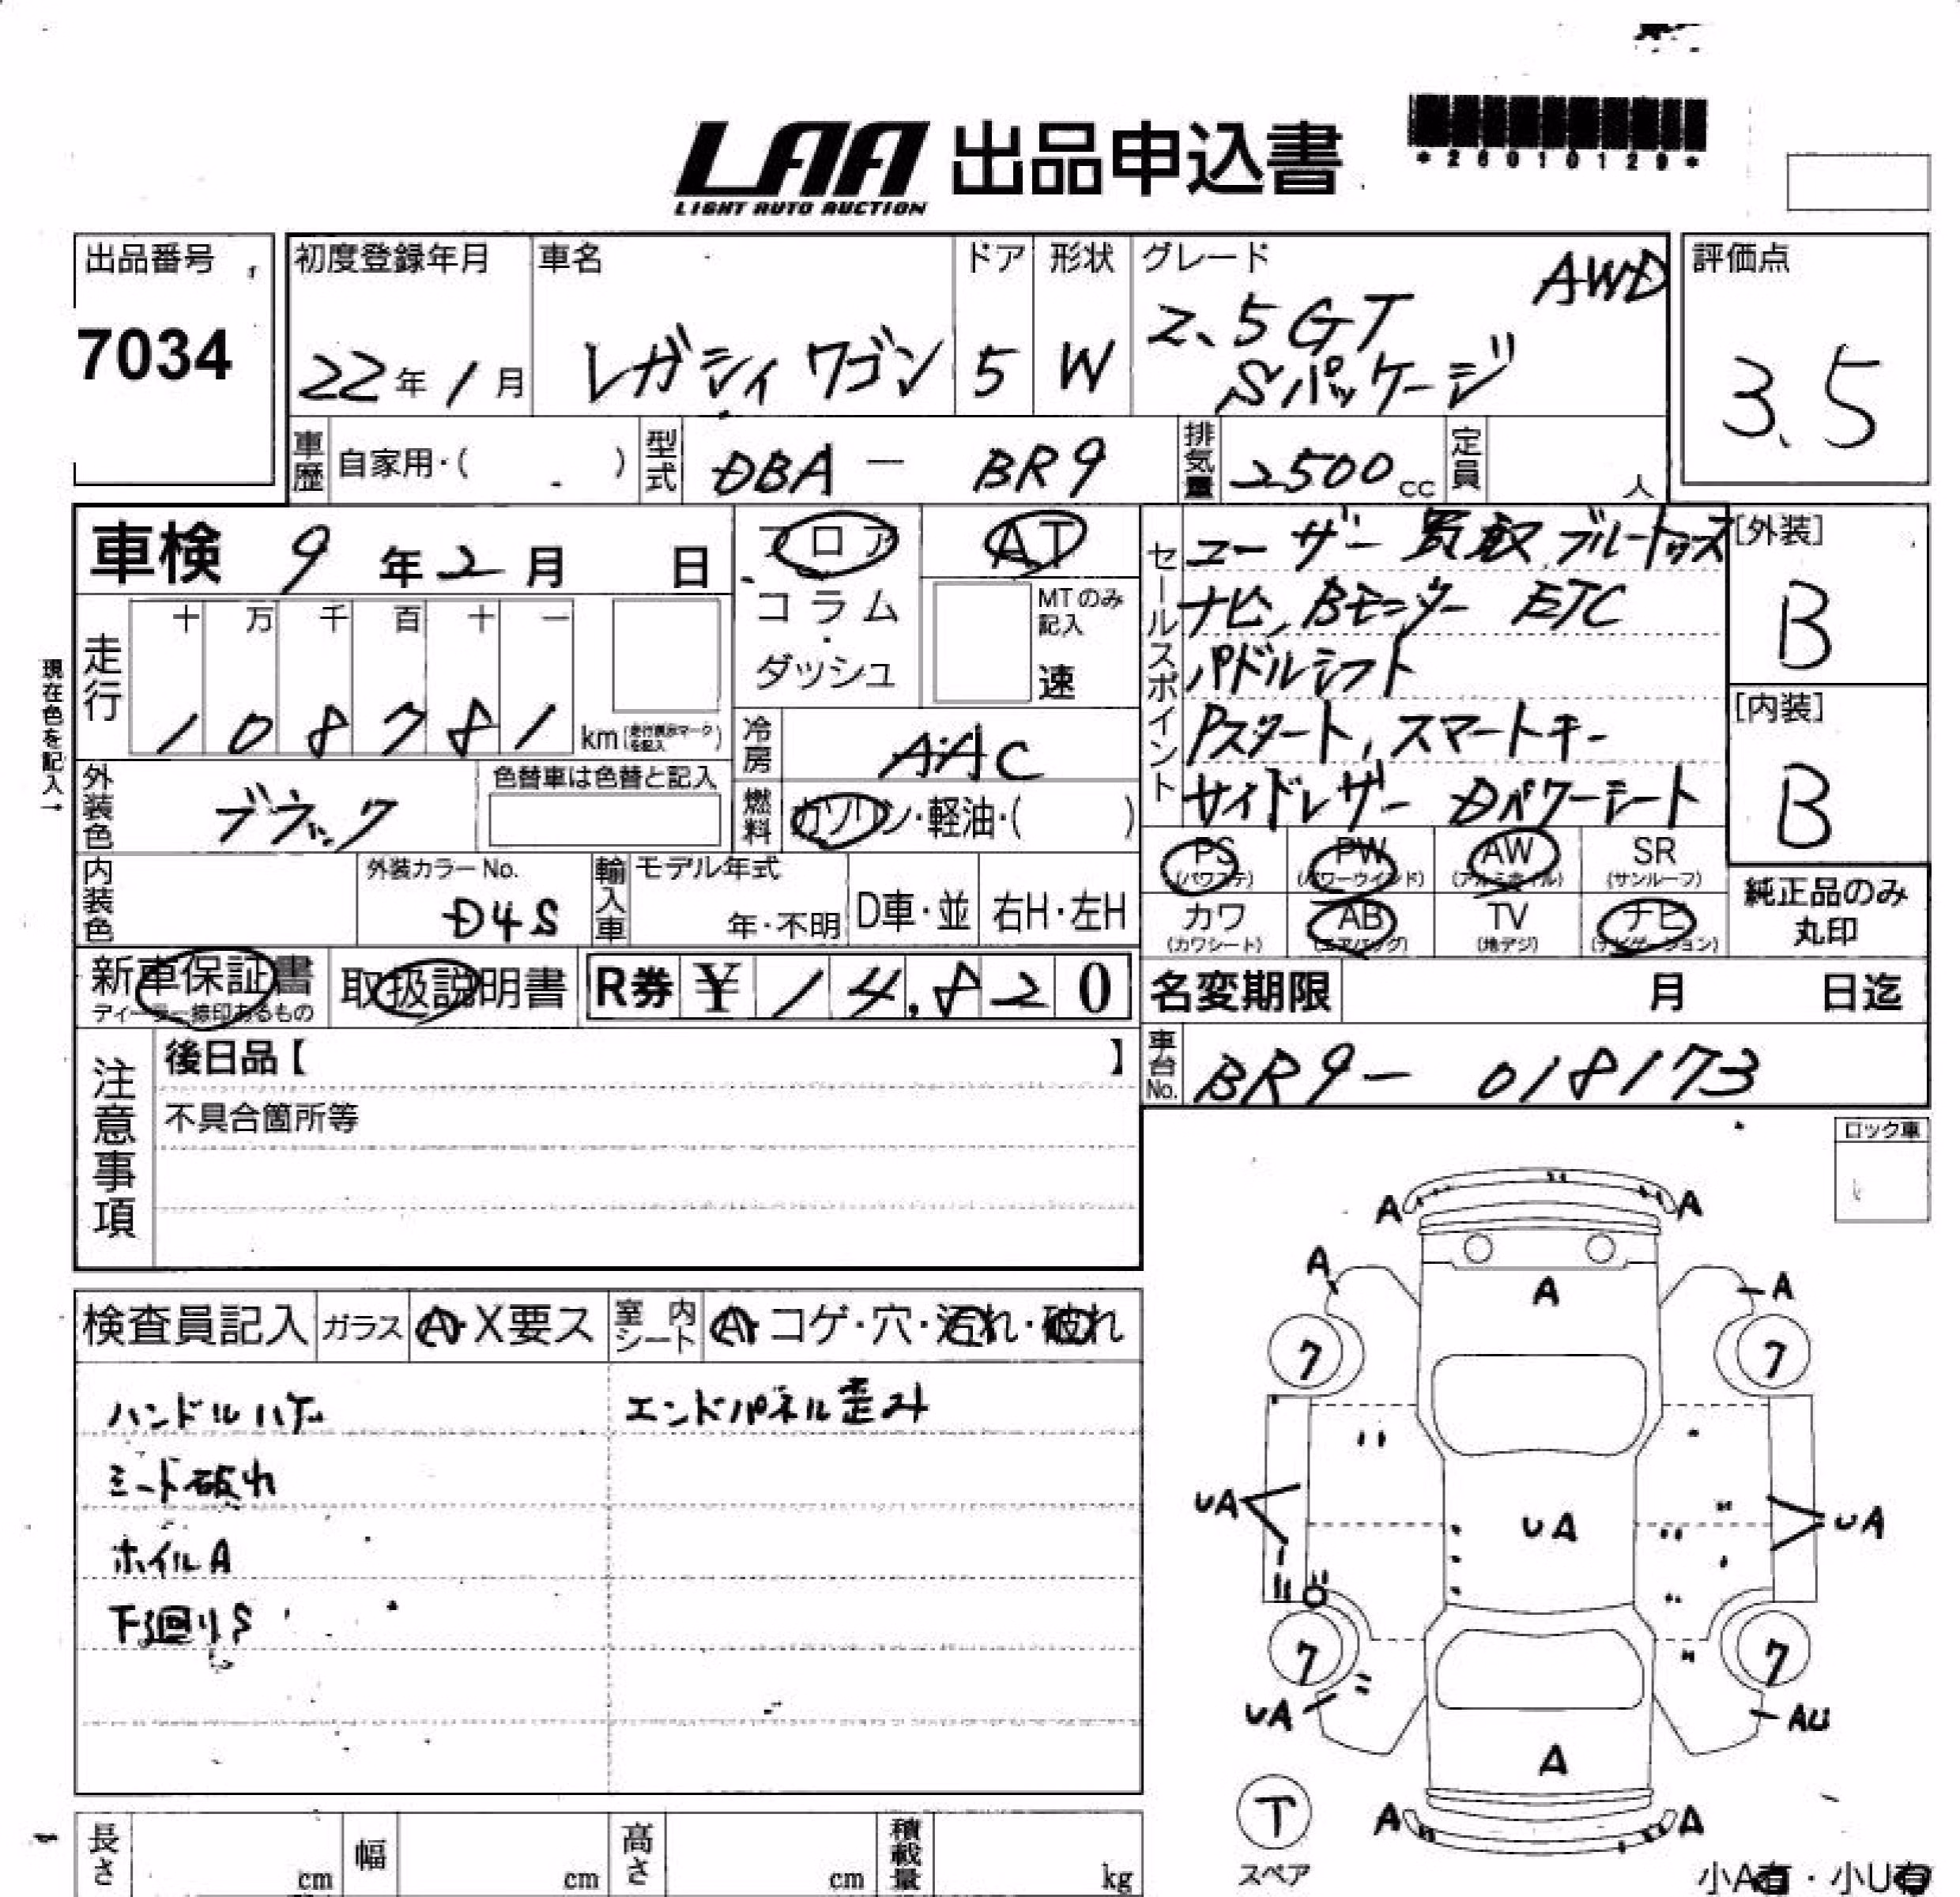 LAA 出品申込書
LIGHT AUTO AUCTION
*26010129*
出品番号
7034
初度登録年月
22年1月
車名
レガシィ ワゴン
ドア
5
形状
W
グレード
AWD
2.5GT
Sパッケージ
評価点
3.5
車歴 自家用・( )
型式 DBA - BR9
排気量 2500cc
定員 人
車検 9年2月 日
現在色を記入→
走行
十 万 千 百 十 一
1 0 8 7 8 1 km(走行表示マークを記入)
フロア
コラム
・
ダッシュ
AT
MTのみ記入
速
冷房 AAC
燃料 ガソリン・軽油・( )
外装色 ブラック
色替車は色替と記入
内装色
外装カラーNo.
D4S
輸入車
モデル年式
年・不明
D車・並
右H・左H
セールスポイント
ユーザー買取 ブルートゥース
ナビ、Bモニター ETC
パドルシフト
Pスタート、スマートキー
サイドレザー Dパワーシート
[外装]
B
[内装]
B
PS (パワステ)
PW (パワーウインド)
AW (アルミホイル)
SR (サンルーフ)
カワ (カワシート)
AB (エアバッグ)
TV (地デジ)
ナビ (ナビゲーション)
純正品のみ
丸印
新車保証書
ディーラー捺印あるもの
取扱説明書
R券 ¥ 14,820
名変期限 月 日迄
車台No. BR9- 018173
注意事項
後日品【 】
不具合箇所等
ロック車
検査員記入
ガラス A・X要ス
室内シート A・コゲ・穴・汚れ・破れ
ハンドルハゲ
エンドパネル歪み
シート破れ
ホイルA
下廻りS
A A
A A
A
7 7
UA UA UA
7 7
UA AU
A
A A
T
スペア
小A有・小U有
長さ cm
幅 cm
高さ cm
積載量 kg